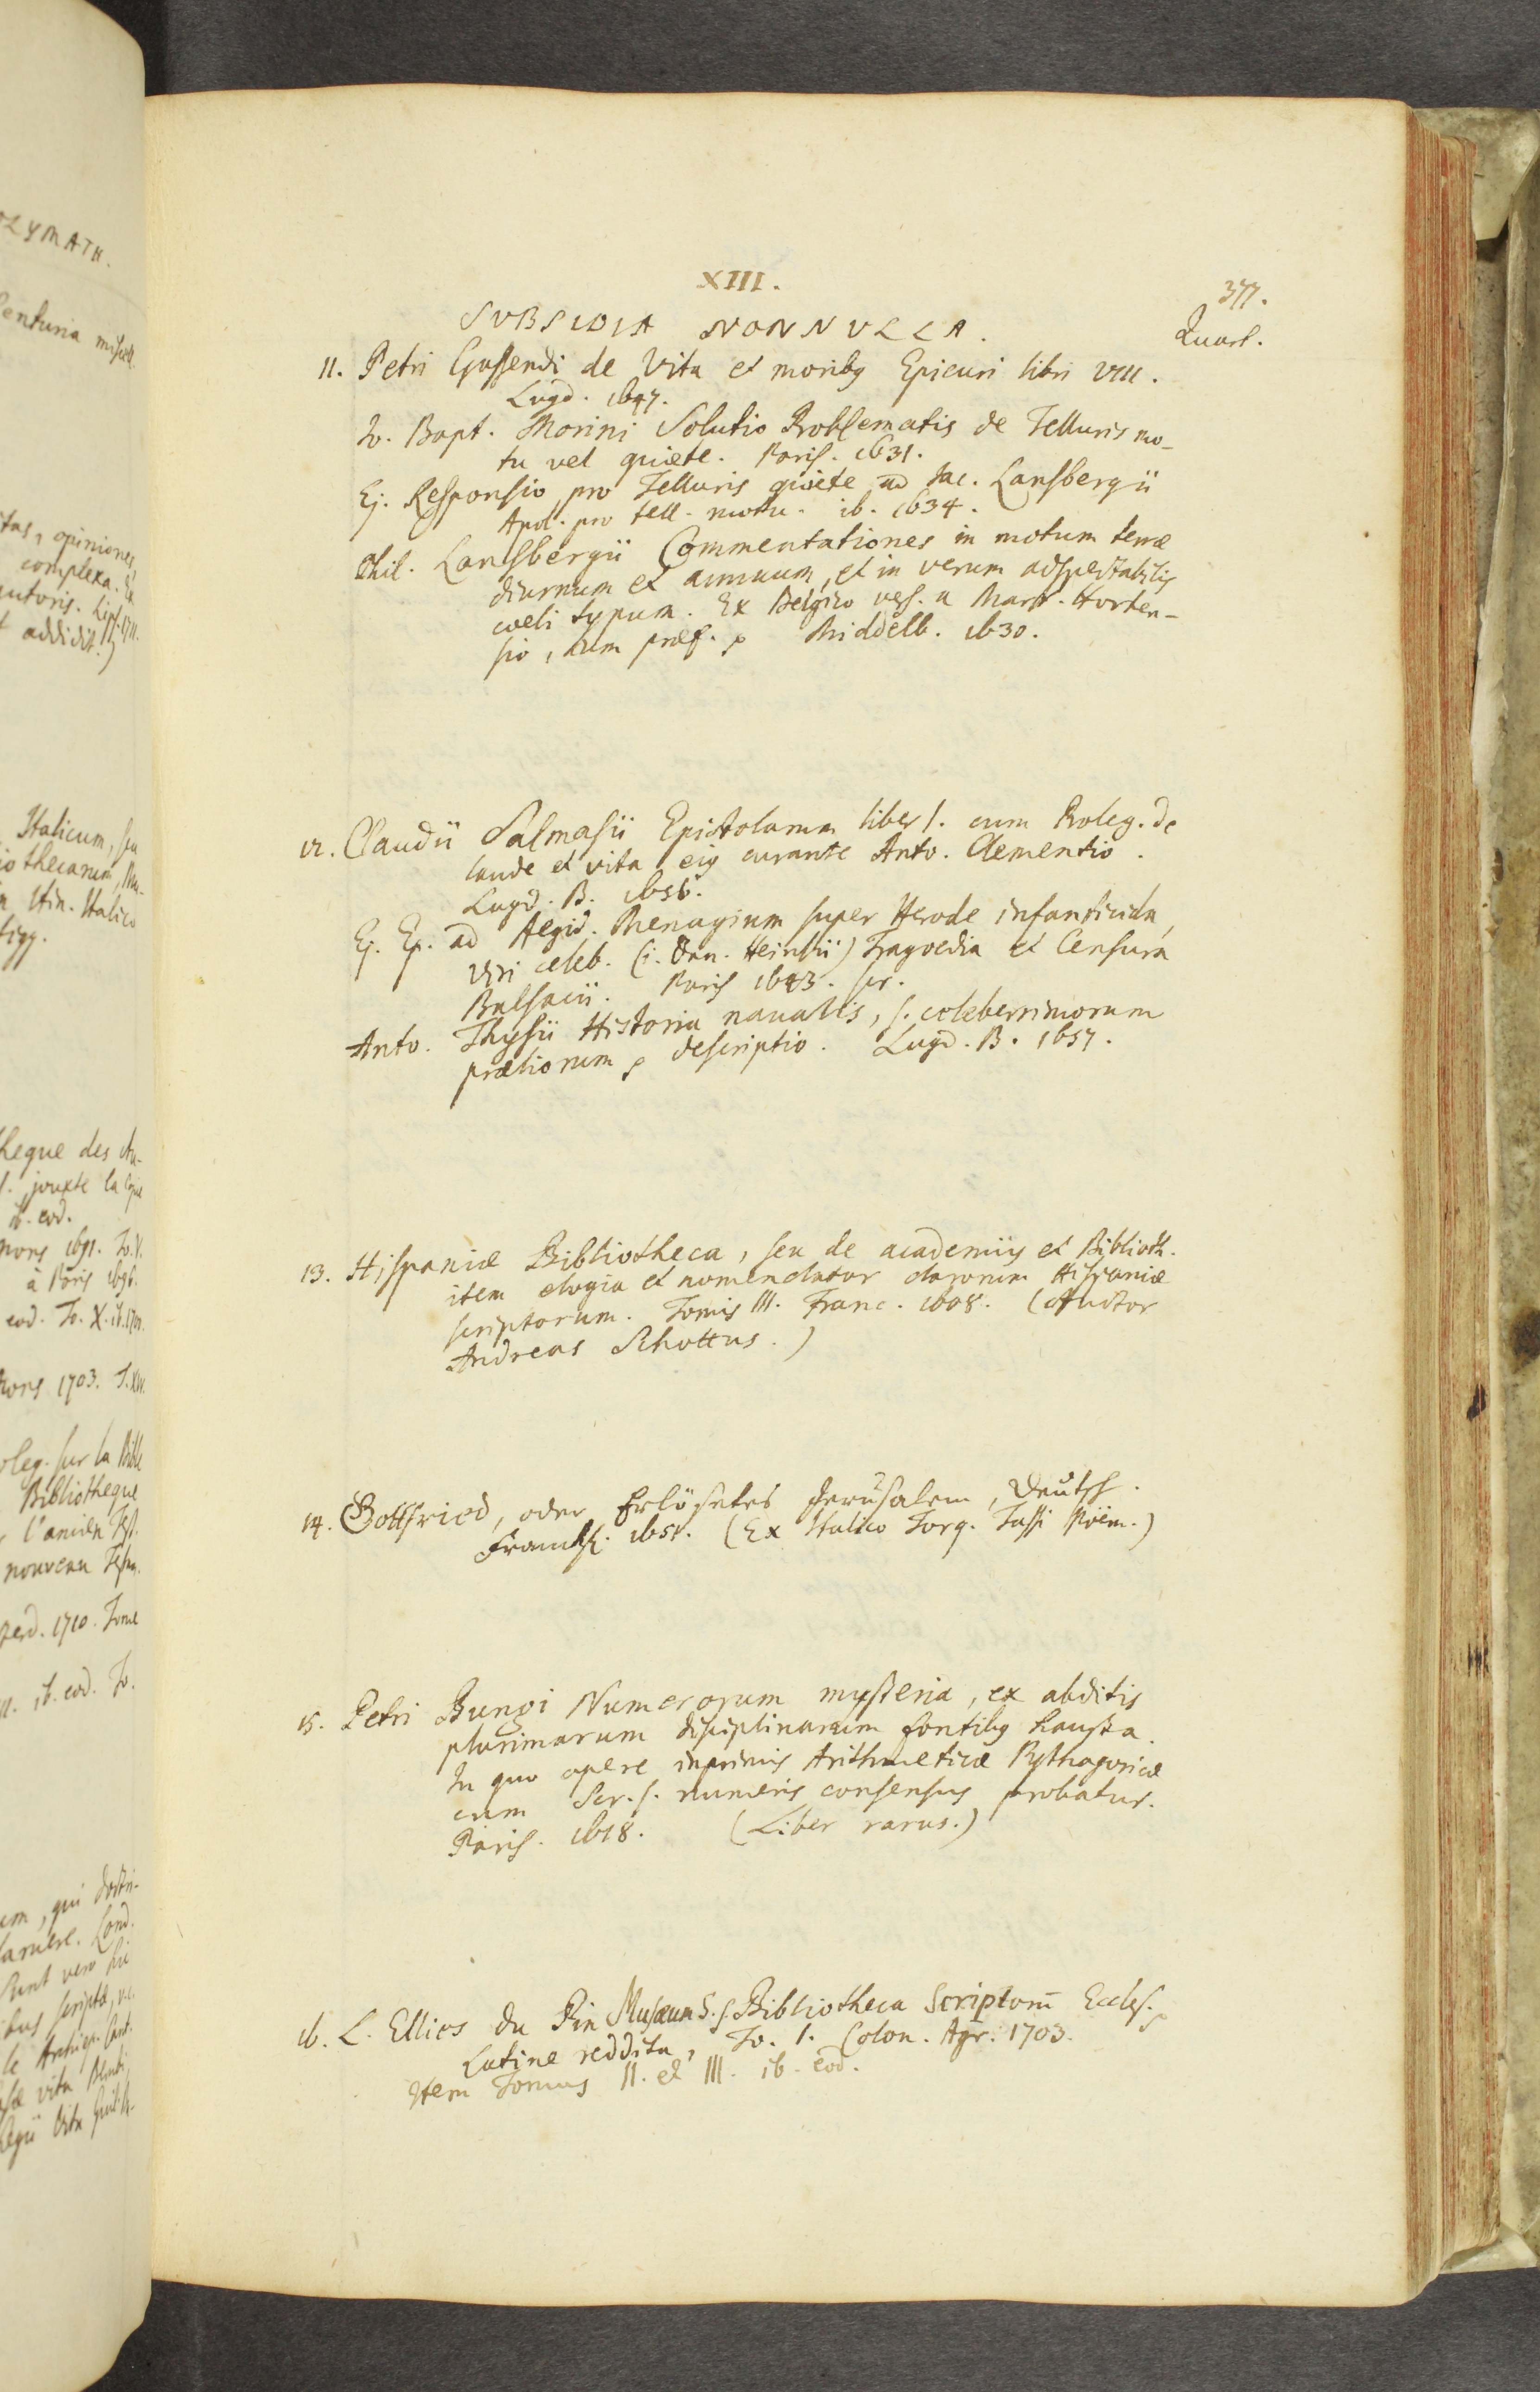 XIII.
377.
SVBSIDIA NONNVLLA.
Quart.
11. Petri Gassendi de Vita et moribq Epicuri libri VIII.
Lugd. 1647.
Io. Bapt. Morini Solutio Problematis de Telluris mo-
tu vel quiete. Paris. 1631.
Ej. Responsio pro Telluris quiete ad Jac. Lansbergii
Apol. pro tell. motu. ib. 1634.
Phil. Lansbergii Commentationes in motum terræ
diurnum et annuum, et in verum adspectabilis
coeli typum. Ex Belgico vers. a Mart. Horten-
sio, cum præf. Middelb. 1630.
12. Claudii Salmasii Epistolarum liber I. cum Proleg. de
laude et vita ejq curante Anto. Clementio.
Lugd. B. 1656.
Ej. Ep. ad Aegid. Menagium super Herode infanticida,
viri celeb. (i. Dan. Heinsii) Tragoedia et Censura
Balsacii. Paris 1643. scr.
Anto. Thysii Historia navalis, s. celeberrimorum
præliorum descriptio. Lugd. B. 1657.
13. Hispaniæ Bibliotheca, seu de academiis et Biblioth.
item elogia et nomenclator clarorum Hispaniæ
scriptorum. Tomis III. Franc. 1608. (Auctor
Andreas Schottus.)
14. Gottfried, oder Erlösetes Jerusalem, Deutsch.
Franckf. 1651. (Ex Italico Torq. Tassi Poëm.)
15. Petri Bungi Numerorum mysteria, ex abditis
plurimarum disciplinarum fontibq hausta.
In quo opere inprimis Arithmeticæ Pythagoricæ
cum Scr. s. numeris consensus probatur.
Paris. 1618. (Liber rarus.)
16. L. Ellies du Pin Musæum S. s. Bibliotheca Scriptorū Eccles.
Latine reddita, To. I. Colon. Agr. 1703.
Item Tomus II. et III. ib. eod.